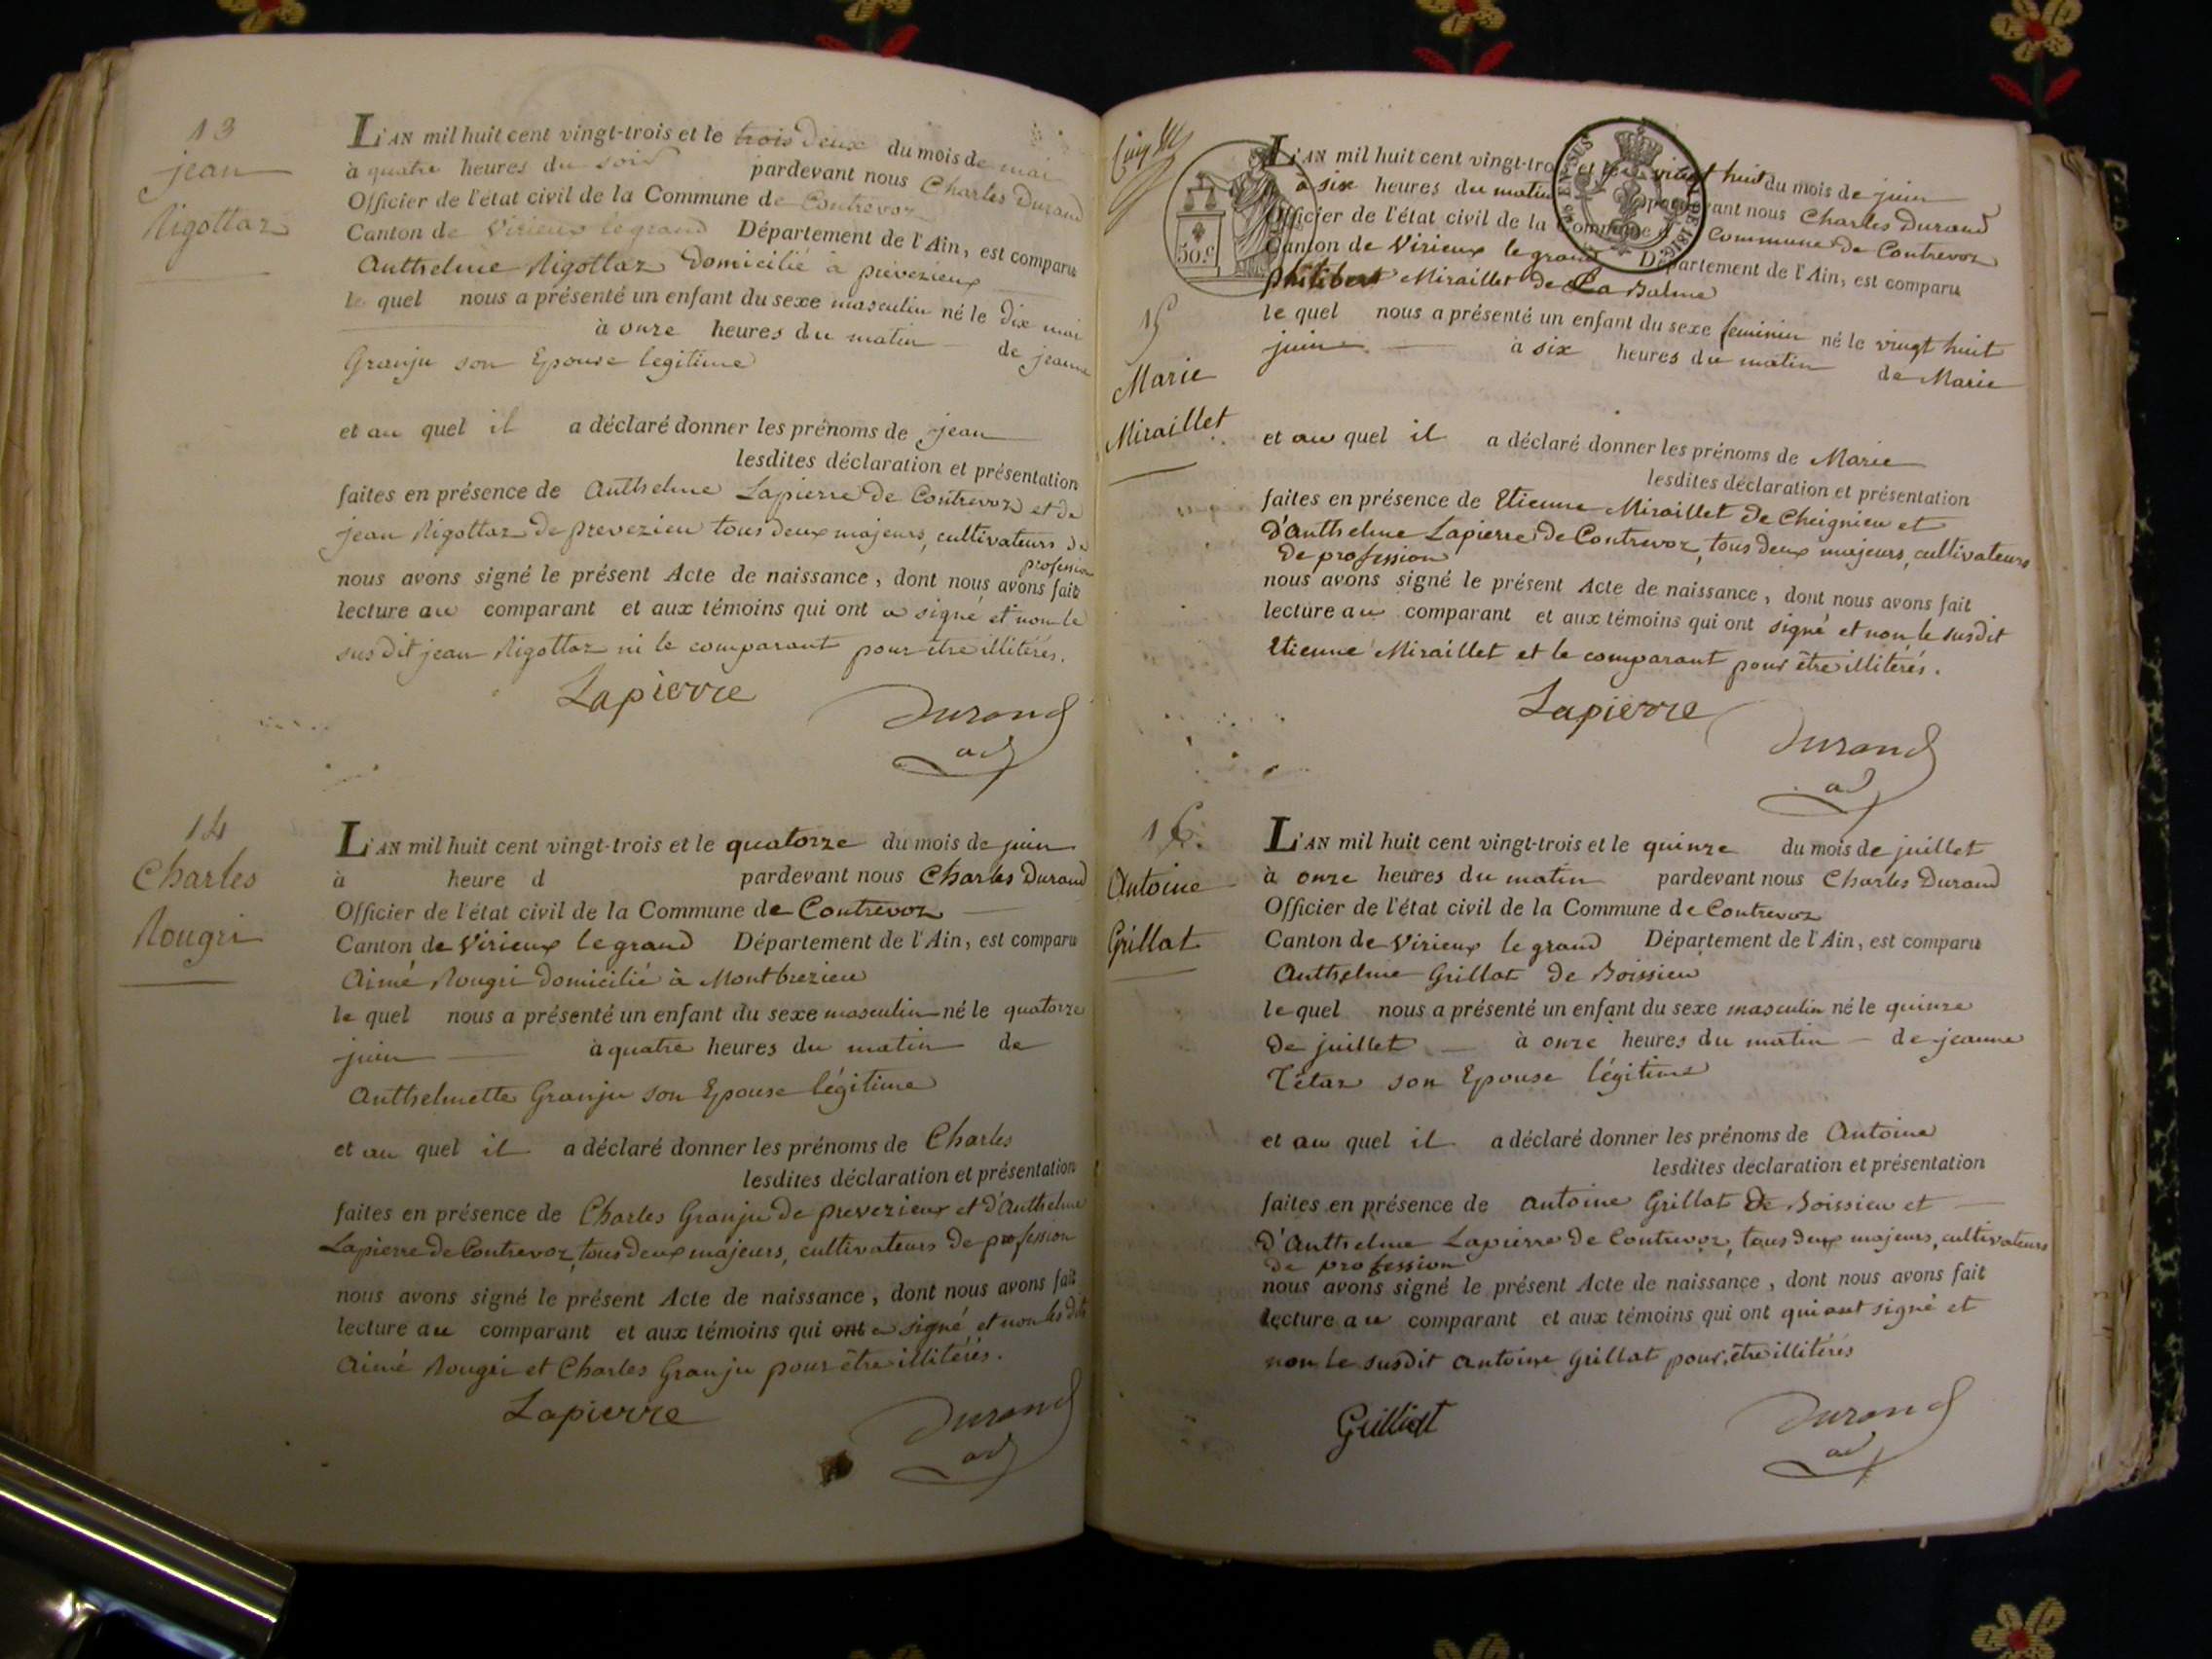 13
jean
Rigottaz
L'AN mil huit cent vingt-trois et le trois deux du mois de mai
à quatre heures du soir pardevant nous Charles Durand
Officier de l'état civil de la Commune de Contrevoz
Canton de Virieux le grand Département de l'Ain, est comparu
Anthelme Rigottaz domicilié à prévezieux
le quel nous a présenté un enfant du sexe masculin né le dix mai
à onze heures du matin de jeanne
Granju son Epouse legitime
et au quel il a déclaré donner les prénoms de jean
lesdites déclaration et présentation
faites en présence de Anthelme Lapierre de Contrevoz et de
jean Rigottaz de prevezieu tous deux majeurs, cultivateurs de
profession
nous avons signé le présent Acte de naissance, dont nous avons fait
lecture au comparant et aux témoins qui ont a signé et non le
susdit jean Rigottaz ni le comparant pour être illitérés.
Lapierre
Durand
ad
14
Charles
Rougri
L'AN mil huit cent vingt-trois et le quatorze du mois de juin
à heure d pardevant nous Charles Durand
Officier de l'état civil de la Commune de Contrevoz
Canton de Virieux le grand Département de l'Ain, est comparu
Aimé Rougri domicilié à Montbrezieu
le quel nous a présenté un enfant du sexe masculin né le quatorze
juin à quatre heures du matin de
Anthelmette Granju son Epouse légitime
et au quel il a déclaré donner les prénoms de Charles
lesdites déclaration et présentation
faites en présence de Charles Granju de prevezieux et d'Anthelme
Lapierre de Contrevoz, tous deux majeurs, cultivateurs de profession
nous avons signé le présent Acte de naissance, dont nous avons fait
lecture au comparant et aux témoins qui ont a signé et non les dits
Aimé Rougri et Charles Granju pour être illitérés.
Lapierre
Durand
ad
50.c
15
Marie
Miraillet
L'AN mil huit cent vingt-trois et le vingt huit du mois de juin
à six heures du matin pardevant nous Charles Durand
Officier de l'état civil de la Commune d Commune de Contrevoz
Canton de Virieux le grand Département de l'Ain, est comparu
philibert Miraillet de La Balme
le quel nous a présenté un enfant du sexe feminin né le vingt huit
juin à six heures du matin de Marie
et au quel il a déclaré donner les prénoms de Marie
lesdites déclaration et présentation
faites en présence de Etienne Miraillet de Cheignieu et
d'Anthelme Lapierre de Contrevoz, tous deux majeurs, cultivateurs
de profession
nous avons signé le présent Acte de naissance, dont nous avons fait
lecture au comparant et aux témoins qui ont signé et non le susdit
Etienne Miraillet et le comparant pour être illitérés.
Lapierre
Durand
ad
16.
Antoine
Grillat
L'AN mil huit cent vingt-trois et le quinze du mois de juillet
à onze heures du matin pardevant nous Charles Durand
Officier de l'état civil de la Commune de Contrevoz
Canton de Virieux le grand Département de l'Ain, est comparu
Anthelme Grillat de Boissieu
le quel nous a présenté un enfant du sexe masculin né le quinze
de juillet à onze heures du matin de jeanne
Tétaz son Epouse légitime
et au quel il a déclaré donner les prénoms de Antoine
lesdites déclaration et présentation
faites en présence de Antoine Grillat de Boissieu et
d'Anthelme Lapierre de Contrevoz, tous deux majeurs, cultivateurs
de profession
nous avons signé le présent Acte de naissance, dont nous avons fait
lecture au comparant et aux témoins qui ont qui ont signé et
non le susdit Antoine Grillat pour être illitérés
Grilliat
Durand
ad